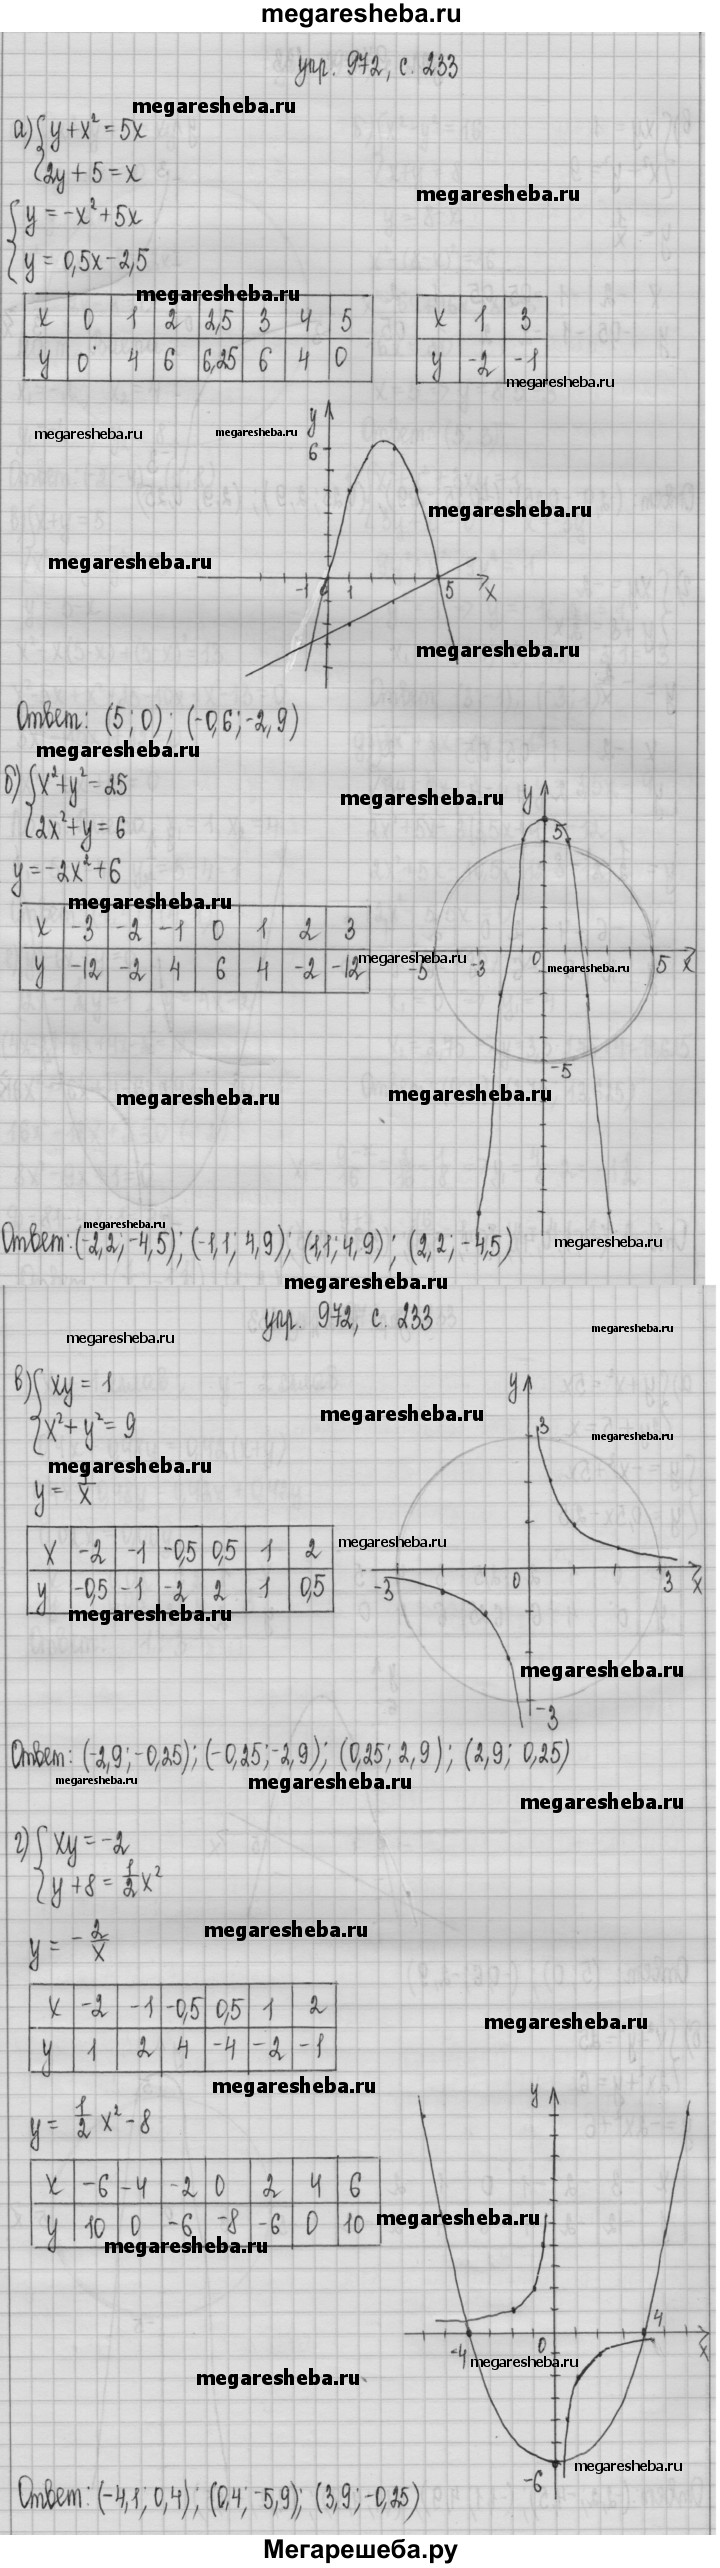 megaresheba.ru
упр. 972, с. 233
megaresheba.ru
а) { y + x² = 5x
2y + 5 = x
megaresheba.ru
{ y = -x² + 5x
y = 0,5x - 2,5
megaresheba.ru
x 0 1 2 2,5 3 4 5
y 0 4 6 6,25 6 4 0
x 1 3
y -2 -1
megaresheba.ru
megaresheba.ru
megaresheba.ru
y
6
megaresheba.ru
megaresheba.ru
-1 0 1 5 x
megaresheba.ru
Ответ: (5; 0); (-0,6; -2,9)
megaresheba.ru
б) { x² + y² = 25
2x² + y = 6
y = -2x² + 6
megaresheba.ru
megaresheba.ru
x -3 -2 -1 0 1 2 3
y -12 -2 4 6 4 -2 -12
y
5
megaresheba.ru
-5 -3 0 5 x
megaresheba.ru
-5
megaresheba.ru
megaresheba.ru
megaresheba.ru
Ответ: (-2,2; -4,5); (-1,1; 4,9); (1,1; 4,9); (2,2; -4,5)
megaresheba.ru
megaresheba.ru
упр. 972, с. 233
megaresheba.ru
megaresheba.ru
в) { xy = 1
x² + y² = 9
megaresheba.ru
megaresheba.ru
megaresheba.ru
y = 1/x
x -2 -1 -0,5 0,5 1 2
y -0,5 -1 -2 2 1 0,5
megaresheba.ru
y
3
megaresheba.ru
-3 0 3 x
megaresheba.ru
-3
Ответ: (-2,9; -0,25); (-0,25; -2,9); (0,25; 2,9); (2,9; 0,25)
megaresheba.ru
megaresheba.ru
megaresheba.ru
г) { xy = -2
y + 8 = 1/2 x²
megaresheba.ru
y = - 2/x
x -2 -1 -0,5 0,5 1 2
y 1 2 4 -4 -2 -1
megaresheba.ru
megaresheba.ru
y = 1/2 x² - 8
x -6 -4 -2 0 2 4 6
y 10 0 -6 -8 -6 0 10
megaresheba.ru
megaresheba.ru
y
-4 0 4 x
megaresheba.ru
megaresheba.ru
-6
megaresheba.ru
Ответ: (-4,1; 0,4); (0,4; -5,9); (3,9; -0,25)
Мегарешеба.ру